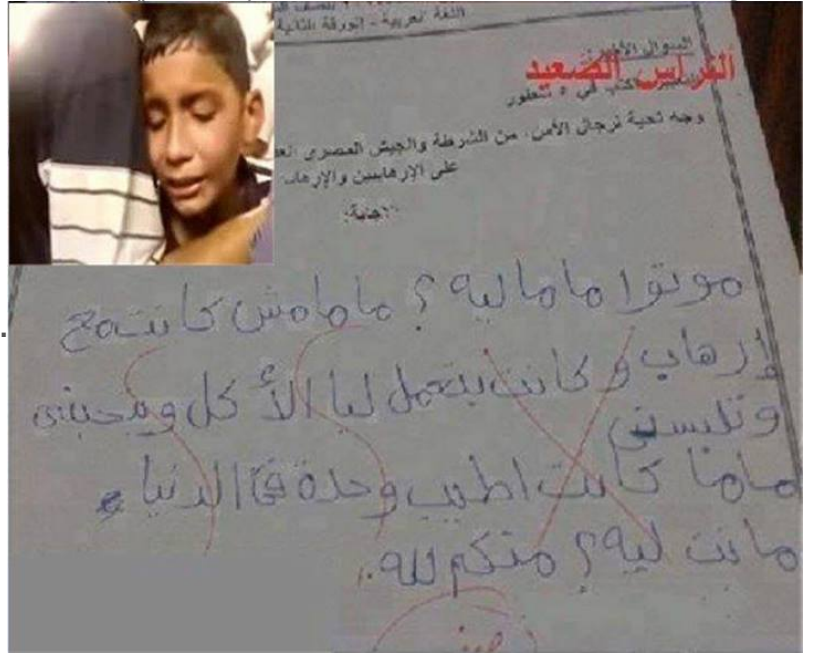 اللغة العربية - الورقة الثانية
السؤال الأول:
الفراس الصعيد
في ٥ سطور
وجه تحية لرجال الأمن، من الشرطة والجيش المصرى
على الإرهابين والإرهاب
الاجابة:
موتوا ماما ليه ؟ ماما مش كانت مع
إرهاب و كانت بتعمل ليا الأكل وبتحبنى
وتلبسنى
ماما كانت اطيب وحدة في الدنيا
ماتت ليه ؟ منكم لله.